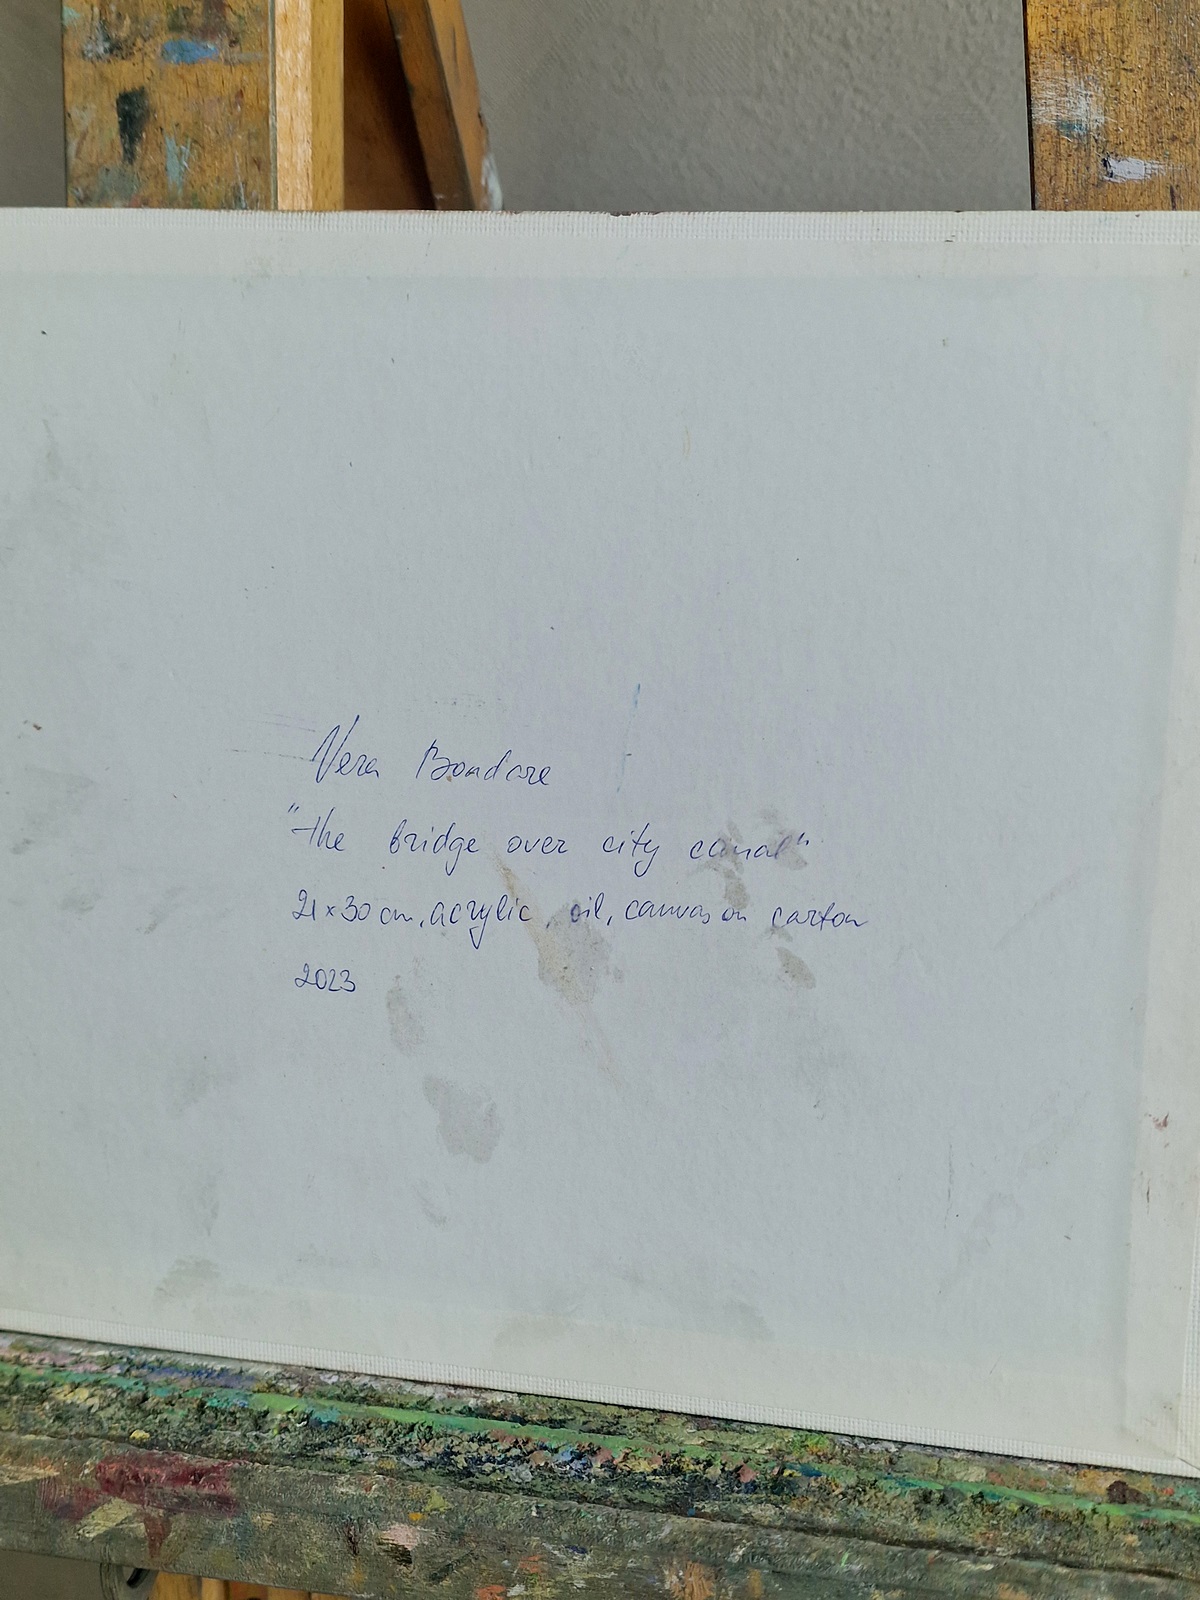 Vera Bondare
"The bridge over city canal"
21x30 cm, acrylic, oil, canvas on carton
2023